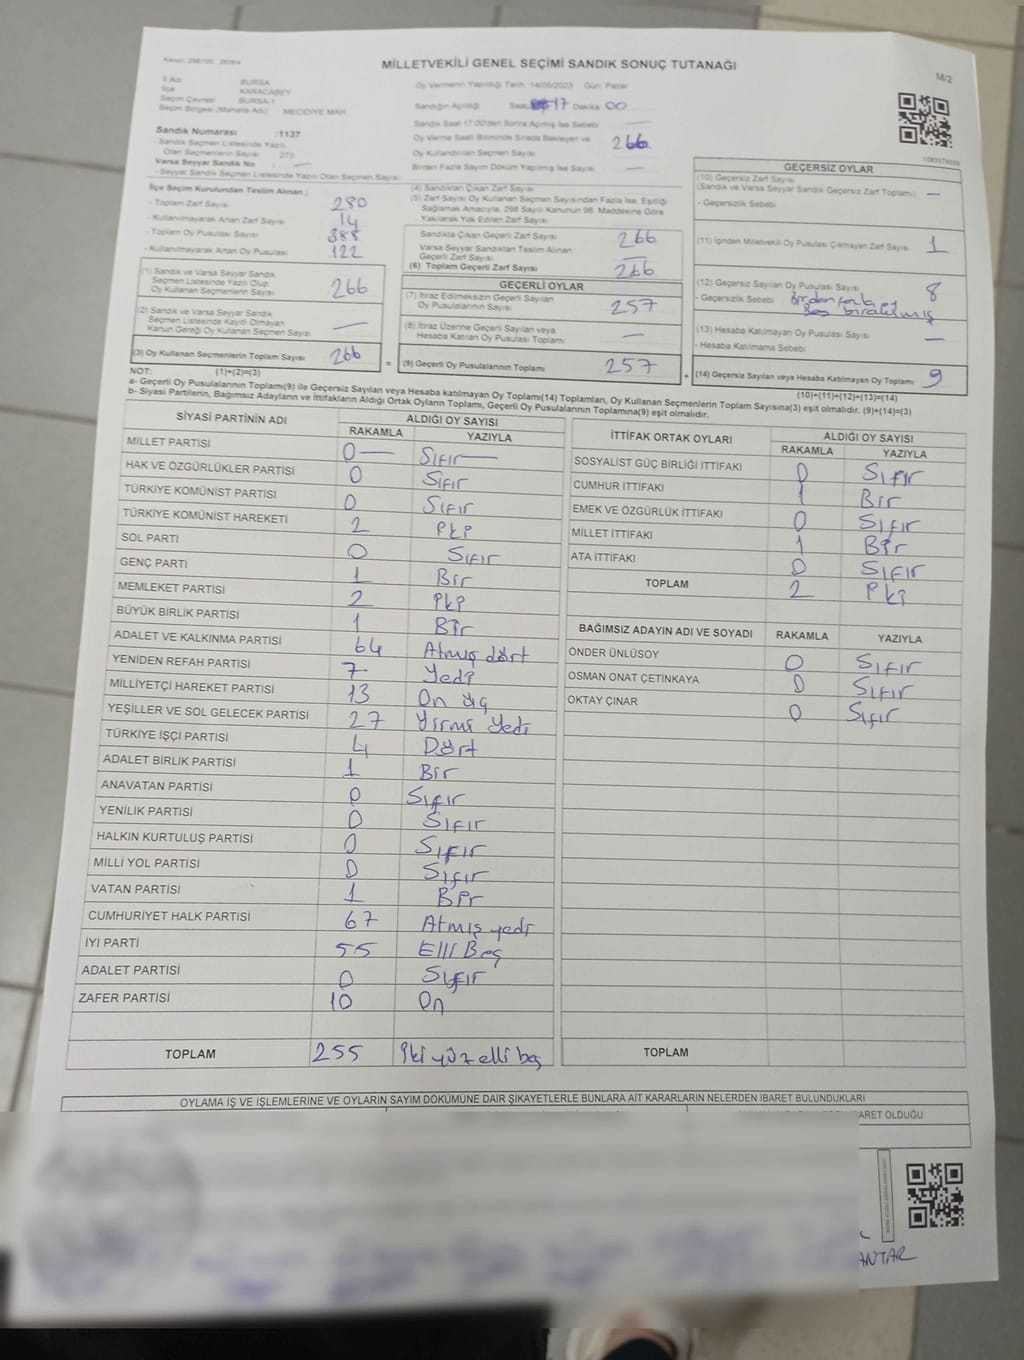 MİLLETVEKİLİ GENEL SEÇİMİ SANDIK SONUÇ TUTANAĞI
M/2
İl Adı BURSA
İlçe KARACABEY
Seçim Çevresi BURSA-1
Seçim Bölgesi (Mahalle Adı) MECİDİYE MAH
Sandık Numarası :1137
- Sandık Seçmen Listesinde Yazılı
Olan Seçmenlerin Sayısı : 273
Varsa Seyyar Sandık No : —
- Seyyar Sandık Seçmen Listesinde Yazılı Olan Seçmen Sayısı
Oy Vermenin Yapıldığı Tarih 14/05/2023 Gün: Pazar
Sandığın Açıldığı Saat 17 Dakika 00
Sandık Saat 17:00'den Sonra Açılmış İse Sebebi —
Oy Verme Saati Bitiminde Sırada Bekleyen ve
Oy Kullandırılan Seçmen Sayısı 266
Birden Fazla Sayım Döküm Yapılmış İse Sayısı —
İlçe Seçim Kurulundan Teslim Alınan :
- Toplam Zarf Sayısı 280
- Kullanılmayarak Artan Zarf Sayısı 14
- Toplam Oy Pusulası Sayısı 388
- Kullanılmayarak Artan Oy Pusulası 122
(1) Sandık ve Varsa Seyyar Sandık
Seçmen Listesinde Yazılı Olup
Oy Kullanan Seçmenlerin Sayısı 266
(2) Sandık ve Varsa Seyyar Sandık
Seçmen Listesinde Kayıtlı Olmayan
Kanun Gereği Oy Kullanan Seçmen Sayısı —
(3) Oy Kullanan Seçmenlerin Toplam Sayısı 266
(4) Sandıktan Çıkan Zarf Sayısı
(5) Zarf Sayısı Oy Kullanan Seçmen Sayısından Fazla İse, Eşitliği
Sağlamak Amacıyla, 298 Sayılı Kanunun 98. Maddesine Göre
Yakılarak Yok Edilen Zarf Sayısı
Sandıkta Çıkan Geçerli Zarf Sayısı 266
Varsa Seyyar Sandıktan Teslim Alınan
Geçerli Zarf Sayısı —
(6) Toplam Geçerli Zarf Sayısı 266
GEÇERLİ OYLAR
(7) İtiraz Edilmeksizin Geçerli Sayılan
Oy Pusulalarının Sayısı 257
(8) İtiraz Üzerine Geçerli Sayılan veya
Hesaba Katılan Oy Pusulası Sayısı —
= (9) Geçerli Oy Pusulalarının Toplamı 257
GEÇERSİZ OYLAR
(10) Geçersiz Zarf Sayısı
(Sandık ve Varsa Seyyar Sandık Geçersiz Zarf Toplamı) —
- Geçersizlik Sebebi
(11) İçinden Milletvekili Oy Pusulası Çıkmayan Zarf Sayısı 1
(12) Geçersiz Sayılan Oy Pusulası Sayısı 8
- Geçersizlik Sebebi Birden fazla oy
Boş bırakılmış
(13) Hesaba Katılmayan Oy Pusulası Sayısı —
- Hesaba Katılmama Sebebi
+ (14) Geçersiz Sayılan veya Hesaba Katılmayan Oy Toplamı 9
NOT: (1)+(2)=(3) (10)+(11)+(12)+(13)=(14)
a- Geçerli Oy Pusulalarının Toplamı(9) ile Geçersiz Sayılan veya Hesaba katılmayan Oy Toplamı(14) Toplamları, Oy Kullanan Seçmenlerin Toplam Sayısına(3) eşit olmalıdır. (9)+(14)=(3)
b- Siyasi Partilerin, Bağımsız Adayların ve İttifakların Aldığı Ortak Oyların Toplamı, Geçerli Oy Pusulalarının Toplamına(9) eşit olmalıdır.
SİYASİ PARTİNİN ADI ALDIĞI OY SAYISI
RAKAMLA YAZIYLA
MİLLET PARTİSİ 0— Sıfır—
HAK VE ÖZGÜRLÜKLER PARTİSİ 0 Sıfır
TÜRKİYE KOMÜNİST PARTİSİ 0 Sıfır
TÜRKİYE KOMÜNİST HAREKETİ 2 İki
SOL PARTİ 0 Sıfır
GENÇ PARTİ 1 Bir
MEMLEKET PARTİSİ 2 İki
BÜYÜK BİRLİK PARTİSİ 1 Bir
ADALET VE KALKINMA PARTİSİ 64 Atmış dört
YENİDEN REFAH PARTİSİ 7 Yedi
MİLLİYETÇİ HAREKET PARTİSİ 13 On üç
YEŞİLLER VE SOL GELECEK PARTİSİ 27 Yirmi Yedi
TÜRKİYE İŞÇİ PARTİSİ 4 Dört
ADALET BİRLİK PARTİSİ 1 Bir
ANAVATAN PARTİSİ 0 Sıfır
YENİLİK PARTİSİ 0 Sıfır
HALKIN KURTULUŞ PARTİSİ 0 Sıfır
MİLLİ YOL PARTİSİ 0 Sıfır
VATAN PARTİSİ 1 Bir
CUMHURİYET HALK PARTİSİ 67 Atmış yedi
İYİ PARTİ 55 Elli Beş
ADALET PARTİSİ 0 Sıfır
ZAFER PARTİSİ 10 On
TOPLAM 255 İki yüz elli beş
İTTİFAK ORTAK OYLARI ALDIĞI OY SAYISI
RAKAMLA YAZIYLA
SOSYALİST GÜÇ BİRLİĞİ İTTİFAKI 0 Sıfır
CUMHUR İTTİFAKI 1 Bir
EMEK VE ÖZGÜRLÜK İTTİFAKI 0 Sıfır
MİLLET İTTİFAKI 1 Bir
ATA İTTİFAKI 0 Sıfır
TOPLAM 2 İki
BAĞIMSIZ ADAYIN ADI VE SOYADI RAKAMLA YAZIYLA
ÖNDER ÜNLÜSOY 0 Sıfır
OSMAN ONAT ÇETİNKAYA 0 Sıfır
OKTAY ÇINAR 0 Sıfır
TOPLAM
OYLAMA İŞ VE İŞLEMLERİNE VE OYLARIN SAYIM DÖKÜMÜNE DAİR ŞİKAYETLERLE BUNLARA AİT KARARLARIN NELERDEN İBARET BULUNDUKLARI
ARET OLDUĞU
ANTAR